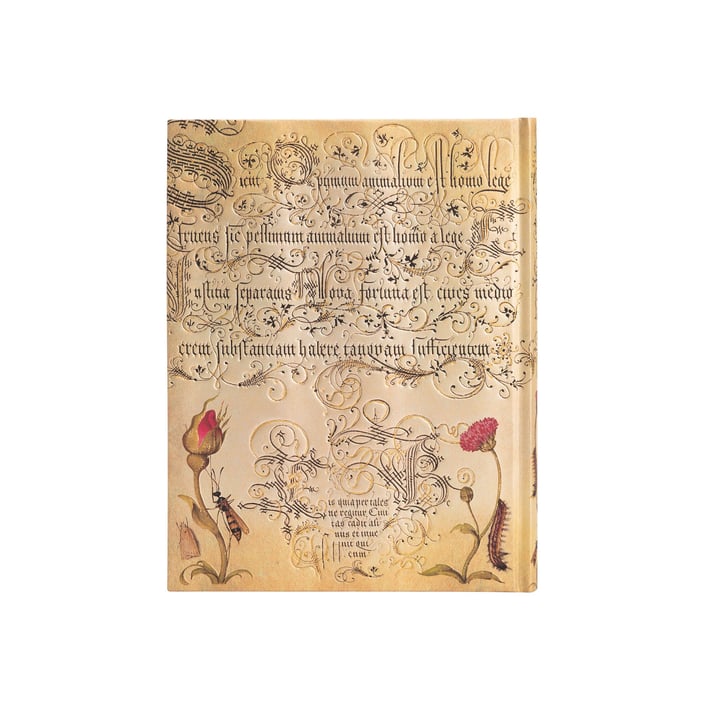 Sicut Optimum animalium est homo lege
fruens sic pessimum animalium est homo a lege, et
Iustitia separatus Nova fortuna est, cives medio
crem substantiam habere tanquam sufficientem
is quia per tales
ne regitur. Civi
tas cadit asi
nus et inue
nit qui
eum